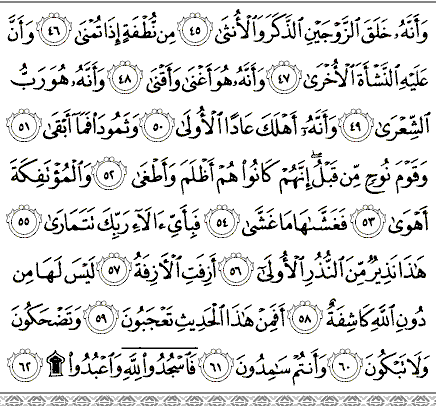 وَأَنَّهُۥ خَلَقَ ٱلزَّوۡجَيۡنِ ٱلذَّكَرَ وَٱلۡأُنثَىٰ ٤٥ مِن نُّطۡفَةٍ إِذَا تُمۡنَىٰ ٤٦ وَأَنَّ
عَلَيۡهِ ٱلنَّشۡأَةَ ٱلۡأُخۡرَىٰ ٤٧ وَأَنَّهُۥ هُوَ أَغۡنَىٰ وَأَقۡنَىٰ ٤٨ وَأَنَّهُۥ هُوَ رَبُّ
ٱلشِّعۡرَىٰ ٤٩ وَأَنَّهُۥٓ أَهۡلَكَ عَادًا ٱلۡأُولَىٰ ٥٠ وَثَمُودَاْ فَمَآ أَبۡقَىٰ ٥١
وَقَوۡمَ نُوحٖ مِّن قَبۡلُۖ إِنَّهُمۡ كَانُواْ هُمۡ أَظۡلَمَ وَأَطۡغَىٰ ٥٢ وَٱلۡمُؤۡتَفِكَةَ
أَهۡوَىٰ ٥٣ فَغَشَّىٰهَا مَا غَشَّىٰ ٥٤ فَبِأَيِّ ءَالَآءِ رَبِّكَ تَتَمَارَىٰ ٥٥
هَٰذَا نَذِيرٞ مِّنَ ٱلنُّذُرِ ٱلۡأُولَىٰٓ ٥٦ أَزِفَتِ ٱلۡأٓزِفَةُ ٥٧ لَيۡسَ لَهَا مِن
دُونِ ٱللَّهِ كَاشِفَةٌ ٥٨ أَفَمِنۡ هَٰذَا ٱلۡحَدِيثِ تَعۡجَبُونَ ٥٩ وَتَضۡحَكُونَ
وَلَا تَبۡكُونَ ٦٠ وَأَنتُمۡ سَٰمِدُونَ ٦١ فَٱسۡجُدُواْۤ لِلَّهِۤ وَٱعۡبُدُواْ ۩ ٦٢